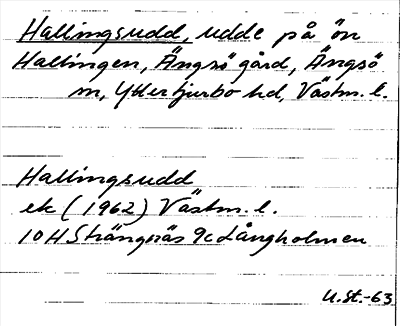 Hallingsudd, udde på ön
Hallingen, Ängsö gård, Ängsö
sn, Ytterjurbo hd, Västm. l.
Hallingsudd
ek (1962) Västm. l.
10H Strängnäs 9c Långholmen
U.St.-63